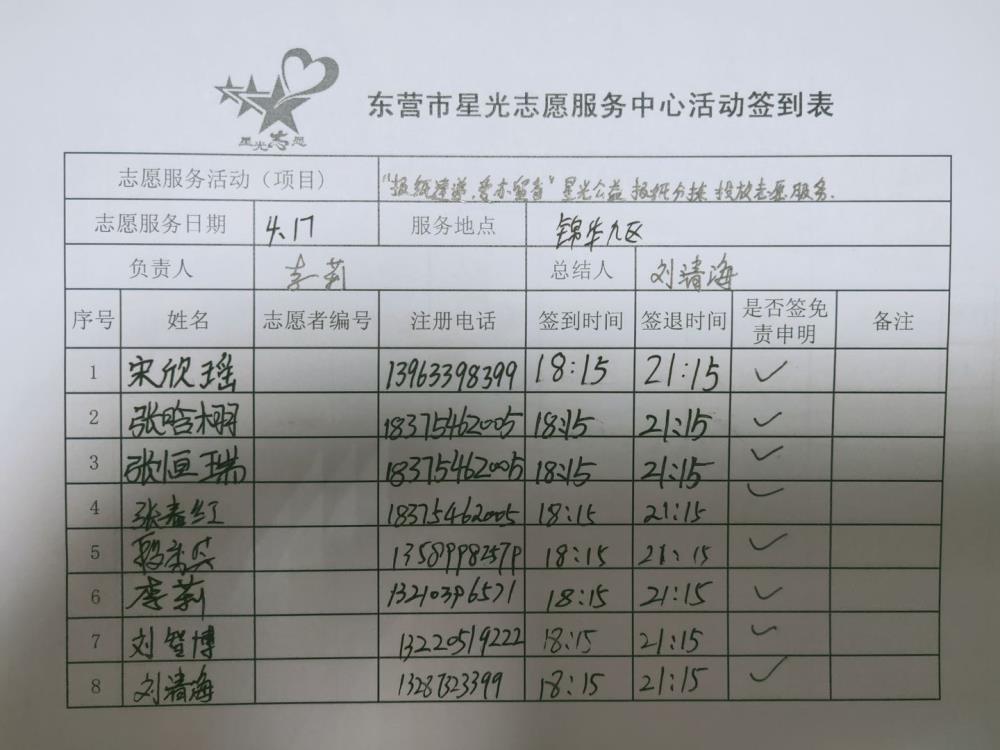 星光志愿
东营市星光志愿服务中心活动签到表
志愿服务活动（项目） "报纸漂递、爱亦留香"星光公益 报纸分拣 投放志愿服务.
志愿服务日期 4.17 服务地点 锦华九区
负责人 李莉 总结人 刘清海
序号 姓名 志愿者编号 注册电话 签到时间 签退时间 是否签免责申明 备注
1 宋欣瑶 13963398399 18:15 21:15 ✓
2 张晗栩 18375462005 18:15 21:15 ✓
3 张恒瑞 18375462005 18:15 21:15 ✓
4 张春红 18375462005 18:15 21:15 ✓
5 13589982579 18:15 21:15 ✓
6 李莉 13210396571 18:15 21:15 ✓
7 刘智博 13220519222 18:15 21:15 ✓
8 刘清海 13287323399 18:15 21:15 ✓